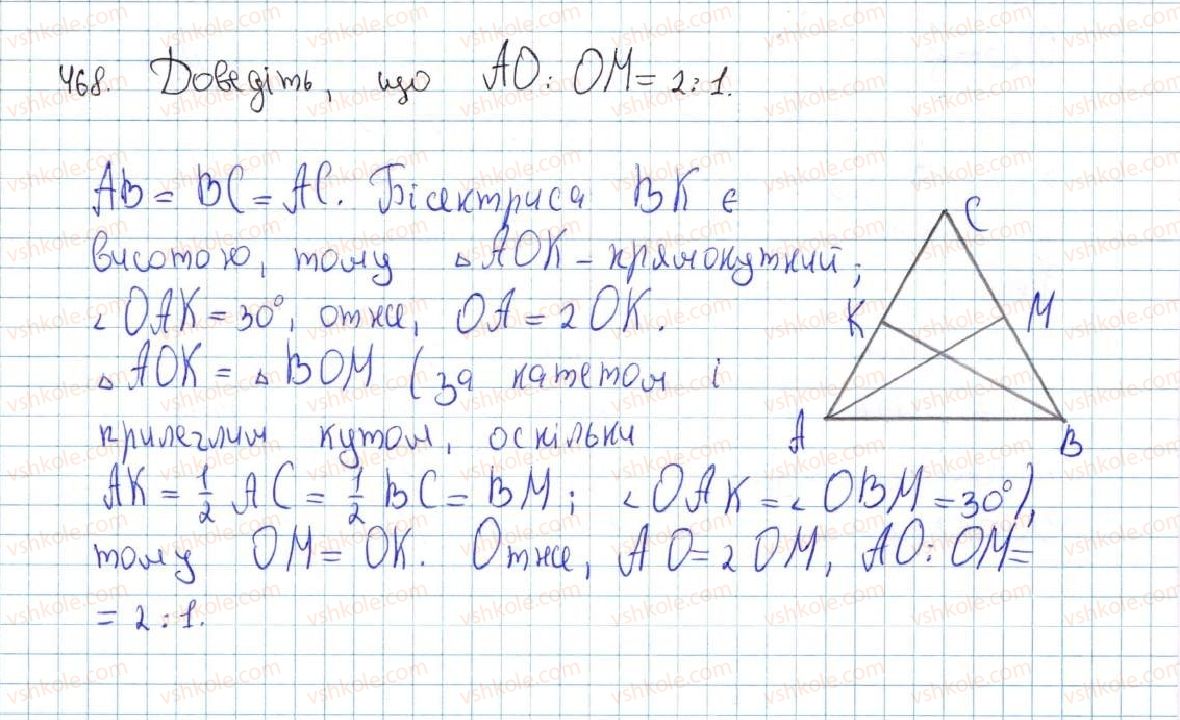 468. Доведіть, що AO : OM = 2 : 1.
AB = BC = AC. Бісектриса BK є
висотою, тому △AOK – прямокутний;
∠OAK = 30°, отже, OA = 2OK.
△AOK = △BOM (за катетом і
прилеглим кутом, оскільки
AK = 1/2 AC = 1/2 BC = BM; ∠OAK = ∠OBM = 30°),
тому OM = OK. Отже, AO = 2OM, AO : OM =
= 2 : 1.
C
K
M
A
B
vshkole.com